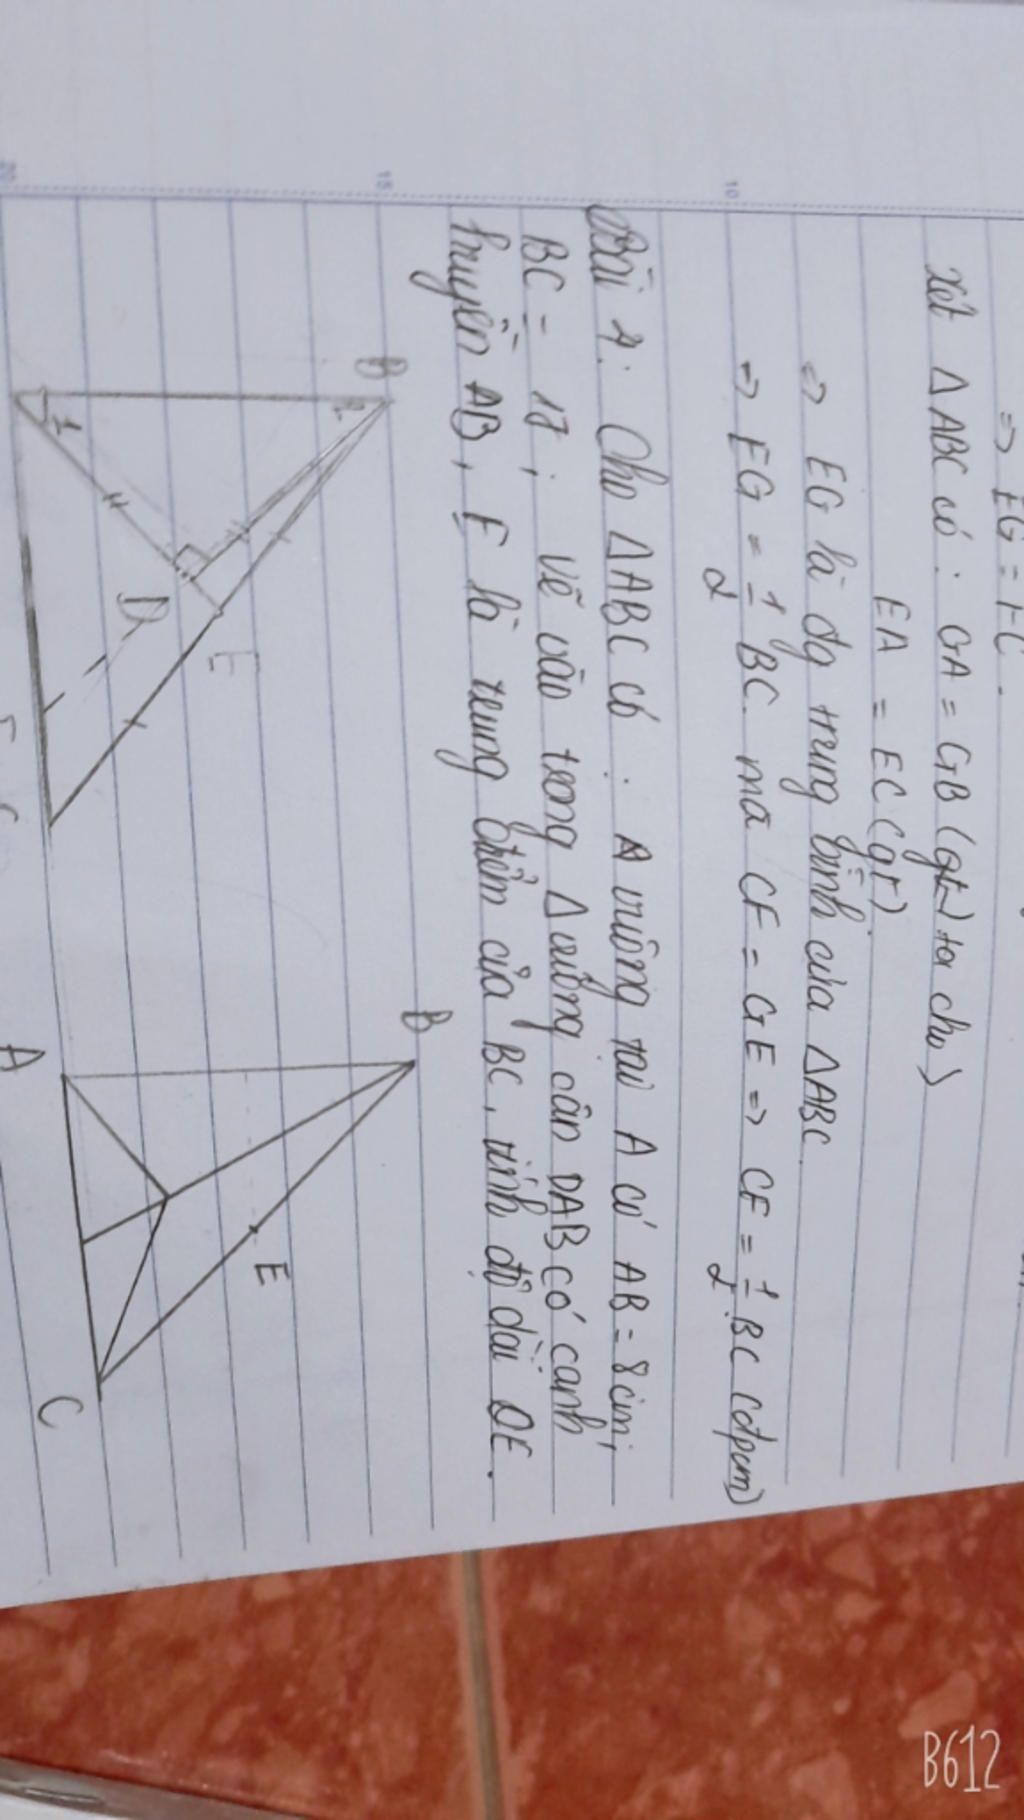 => EG = FC.
Xét Δ ABC có : GA = GB (gt) ta cho)
EA = EC (gt)
=> EG là đg trung bình của ΔABC
=> EG = 1/2 BC. mà CF = GE => CF = 1/2 BC (đpcm)
Bài 4: Cho ΔABC có : A vuông tại A có AB = 8cm;
BC = 17; vẽ vào trong Δ vuông cân DAB có cạnh
huyền AB, E là trung điểm của BC, tính độ dài DE.
B
2
1
D
E
B
E
A
C
10
15
20
B612